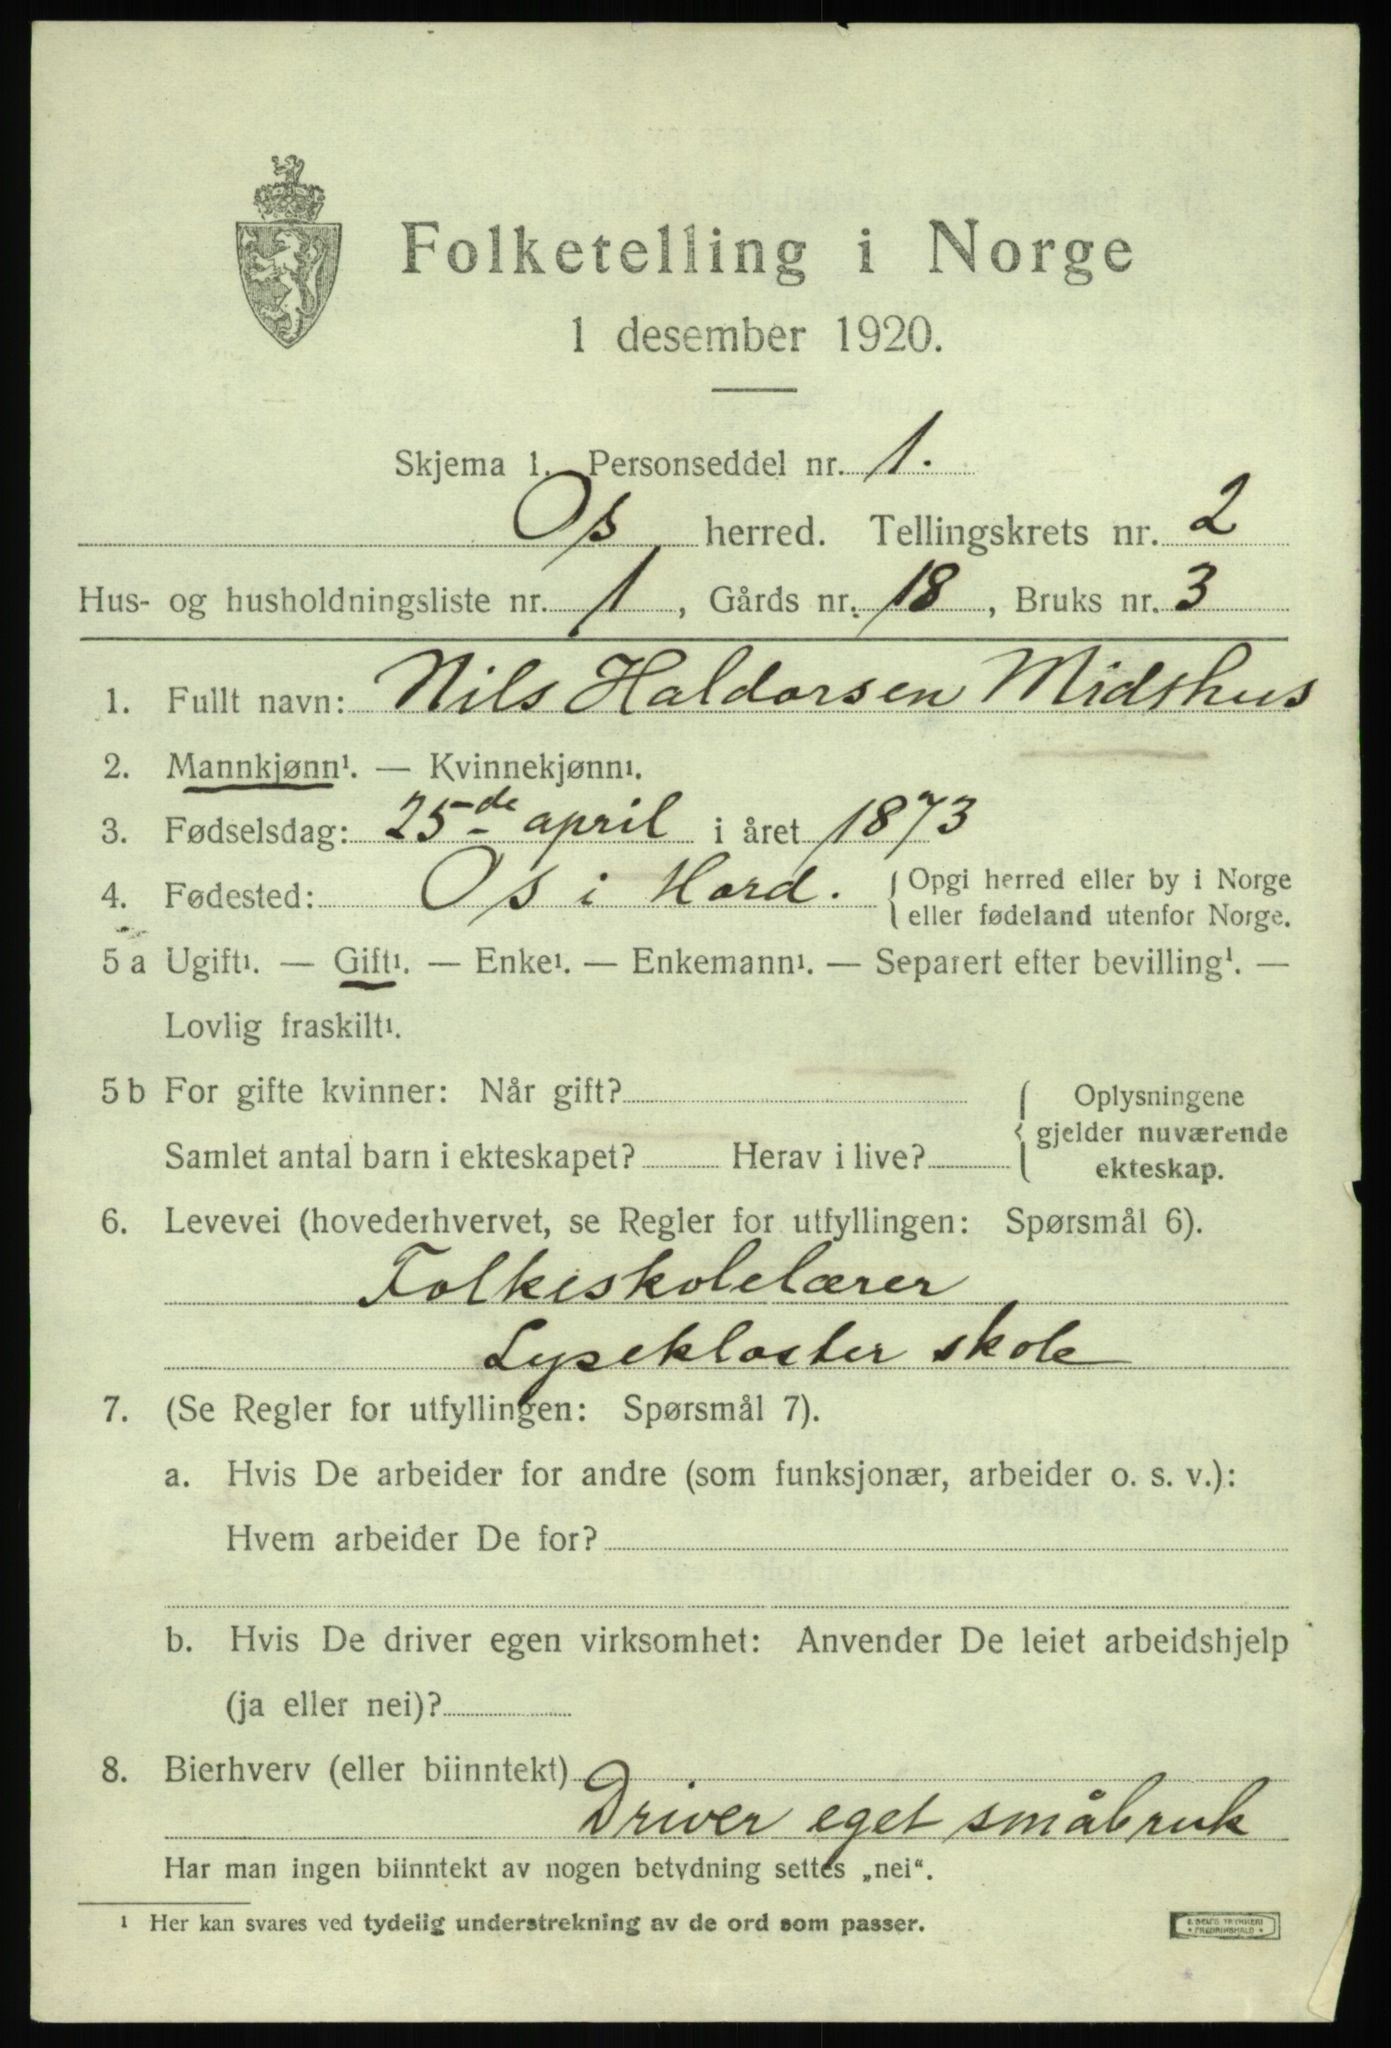 Folketelling i Norge
1 desember 1920.
Skjema 1. Personseddel nr. 1.
Os herred. Tellingskrets nr. 2
Hus- og husholdningsliste nr. 1, Gårds nr. 18, Bruks nr. 3
1. Fullt navn: Nils Haldorsen Midshus
2. Mannkjønn¹. — Kvinnekjønn¹.
3. Fødselsdag: 25de april i året 1873
4. Fødested: Os i Hord. { Opgi herred eller by i Norge
eller fødeland utenfor Norge.
5 a Ugift¹. — Gift¹. — Enke¹. — Enkemann¹. — Separert efter bevilling¹. —
Lovlig fraskilt¹.
5 b For gifte kvinner: Når gift? { Oplysningene
gjelder nuværende
Samlet antal barn i ekteskapet? Herav i live?
ekteskap.
6. Levevei (hovederhvervet, se Regler for utfyllingen: Spørsmål 6).
Folkeskolelærer
Lysekloster skole
7. (Se Regler for utfyllingen: Spørsmål 7).
a. Hvis De arbeider for andre (som funksjonær, arbeider o. s. v.):
Hvem arbeider De for?
b. Hvis De driver egen virksomhet: Anvender De leiet arbeidshjelp
(ja eller nei)?
8. Bierhverv (eller biinntekt)
Driver eget småbruk
Har man ingen biinntekt av nogen betydning settes „nei“.
¹ Her kan svares ved tydelig understrekning av de ord som passer.